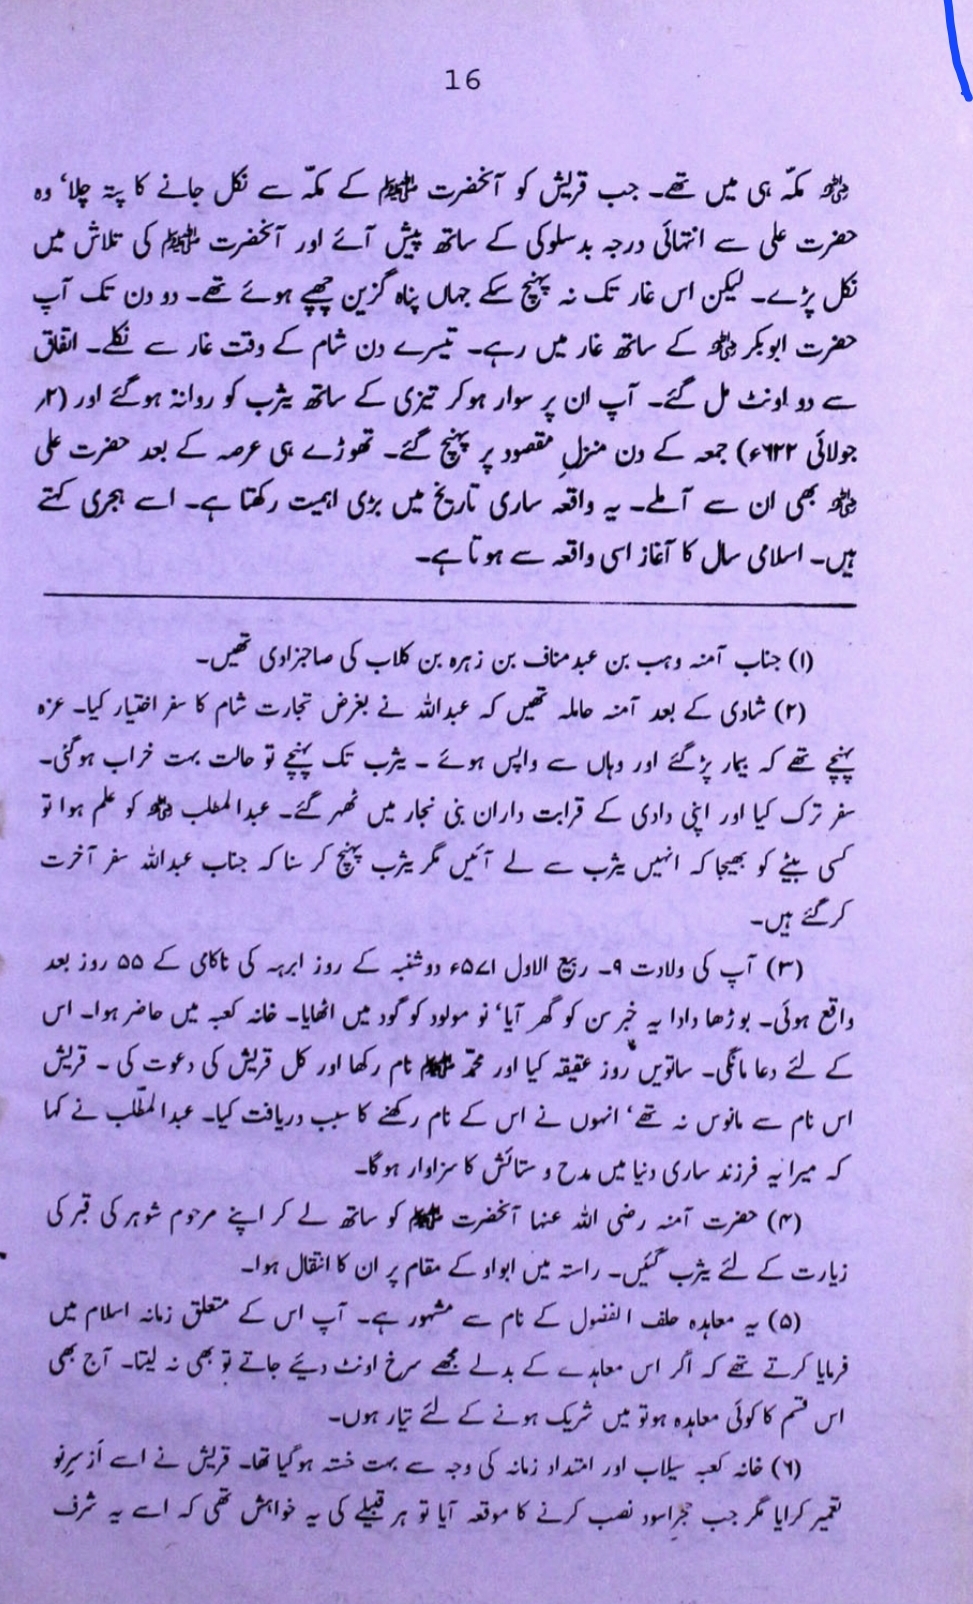 16
ؓ مکہّ ہی میں تھے۔ جب قریش کو آنحضرت ﷺ کے مکہّ سے نکل جانے کا پتہ چلا‘ وہ
حضرت علی سے انتہائی درجہ بدسلوکی کے ساتھ پیش آئے اور آنحضرت ﷺ کی تلاش میں
نکل پڑے۔ لیکن اس غار تک نہ پہنچ سکے جہاں پناہ گزین چھپے ہوئے تھے۔ دو دن تک آپ
حضرت ابوبکر ؓ کے ساتھ غار میں رہے۔ تیسرے دن شام کے وقت غار سے نکلے۔ اتفاق
سے دو اونٹ مل گئے۔ آپ ان پر سوار ہوکر تیزی کے ساتھ یثرب کو روانہ ہوگئے اور (۲؍
جولائی ۶۲۲ء) جمعہ کے دن منزلِ مقصود پر پہنچ گئے۔ تھوڑے ہی عرصہ کے بعد حضرت علی
ؓ بھی ان سے آملے۔ یہ واقعہ ساری تاریخ میں بڑی اہمیت رکھتا ہے۔ اسے ہجری کہتے
ہیں۔ اسلامی سال کا آغاز اسی واقعہ سے ہوتا ہے۔
(۱) جناب آمنہ وہب بن عبدمناف بن زہرہ بن کلاب کی صاحبزادی تھیں۔
(۲) شادی کے بعد آمنہ حاملہ تھیں کہ عبداللہ نے بغرض تجارت شام کا سفر اختیار کیا۔ عزہ
پہنچے تھے کہ بیمار پڑگئے اور وہاں سے واپس ہوئے ۔ یثرب تک پہنچے تو حالت بہت خراب ہوگئی۔
سفر ترک کیا اور اپنی دادی کے قرابت داران بنی نجار میں ٹھہر گئے۔ عبدالمطلب ؓ کو علم ہوا تو
کسی بیٹے کو بھیجا کہ انہیں یثرب سے لے آئیں مگر یثرب پہنچ کر سنا کہ جناب عبداللہ سفر آخرت
کرگئے ہیں۔
(۳) آپ کی ولادت ۹۔ ربیع الاول ۵۷۱ء دوشنبہ کے روز ابرہہ کی ناکامی کے ۵۵ روز بعد
واقع ہوئی۔ بوڑھا دادا یہ خبر سن کو گھر آیا‘ نو مولود کو گود میں اٹھایا۔ خانہ کعبہ میں حاضر ہوا۔ اس
کے لئے دعا مانگی۔ ساتویں روز عقیقہ کیا اور محمّد ﷺ نام رکھا اور کل قریش کی دعوت کی ۔ قریش
اس نام سے مانوس نہ تھے‘ انہوں نے اس کے نام رکھنے کا سبب دریافت کیا۔ عبدالمطّلب نے کہا
کہ میرا یہ فرزند ساری دنیا میں مدح و ستائش کا سزاوار ہوگا۔
(۴) حضرت آمنہ رضی اللہ عنہا آنحضرت ﷺ کو ساتھ لے کر اپنے مرحوم شوہر کی قبر کی
زیارت کے لئے یثرب گئیں۔ راستہ میں ابواو کے مقام پر ان کا انتقال ہوا۔
(۵) یہ معاہدہ حلف الفضول کے نام سے مشہور ہے۔ آپ اس کے متعلق زمانہ اسلام میں
فرمایا کرتے تھے کہ اگر اس معاہدے کے بدلے مجھے سرخ اونٹ دیئے جاتے تو بھی نہ لیتا۔ آج بھی
اس قسم کا کوئی معاہدہ ہوتو میں شریک ہونے کے لئے تیّار ہوں۔
(۶) خانہ کعبہ سیلاب اور امتداد زمانہ کی وجہ سے بہت خستہ ہوگیا تھا۔ قریش نے اسے اَز سرِنو
تعمیر کرایا مگر جب حجرِاسود نصب کرنے کا موقعہ آیا تو ہر قبیلے کی یہ خواہش تھی کہ اسے یہ شرف